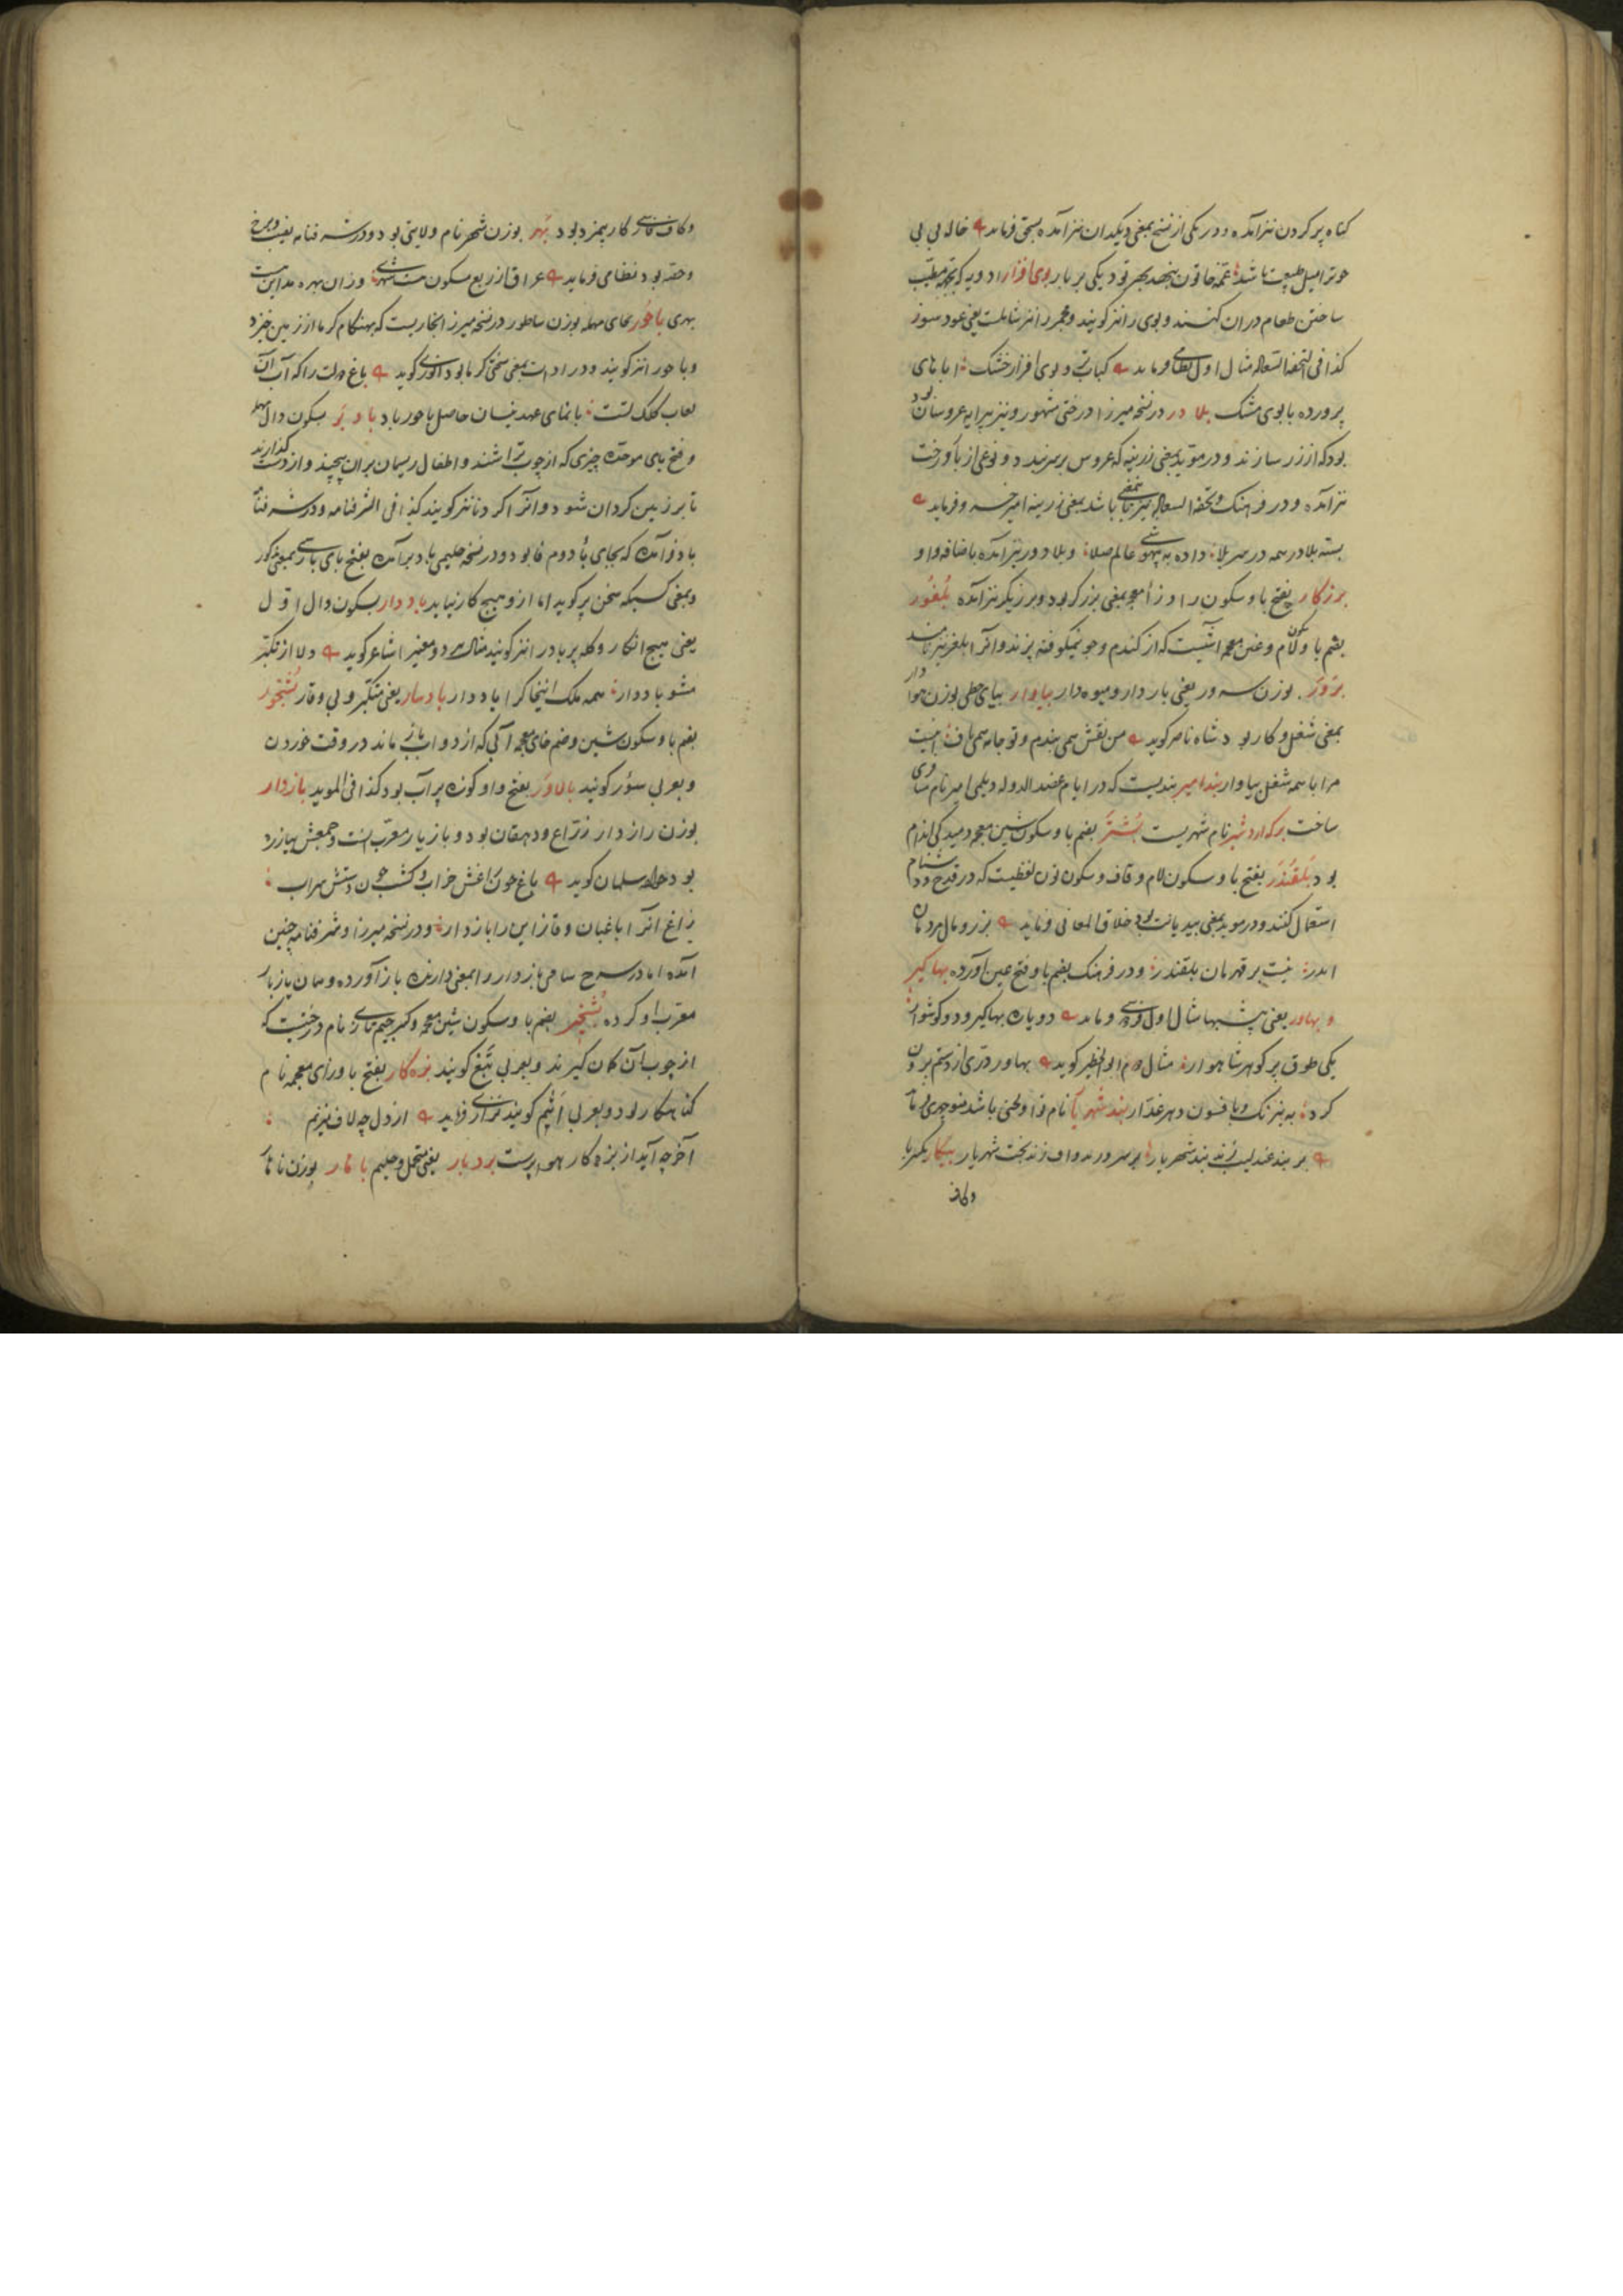 کناه پر کردن نیز آمده و در یکی از نسخ بمعنی دیکدان نیز آمده بسحق فرماید خاله بی بی
چو ترا میل طبیعت باشد عمه خاتون بنهد بهر تو دیکی بر بار بوی افزار ادویه که بجهة مطیّب
ساختن طعام دران کنند و بوی زا نیز کویند و مجمر را نیز شاملست یعنی عود سوز
کذا فی التحفة السعادة مثال اول نظامی فرماید کباب تر و بوی افزار خشک اباهای
پرورده با بوی مشک بلادر در نسخه میرزا درختی مشهور و نیز پیرایه عروسان بود
بود که از زر سازند و در موید بمعنی زرینه که عروس بر سر نهد و نوعی از بار درخت
نیز آمده و در فرهنک و تحفة السعادة نیز بمعنی باشد بمعنی زرینه امیر خسرو فرماید
بسته بلادر همه در سر بلا داده به بیهوشی عالم صلا و بلا دور نیز آمده باضافه واو
برزکار بفتح با و سکون را و زاء معجمه بمعنی برزکر بود و برزیکر نیز آمده بلغور
بضم با و لام و غین معجمه آشیست که از کندم و جو نیمکوفته پزند و آنرا بلغر نیز نامند
برور بوزن سرور یعنی بار دار و میوه دار بیاوار بیای حطی بوزن هوادار
بمعنی شغل و کار بود شاه ناصر کوید من نقش همی بندم و تو جامه همی باف اینست
مرا با همه شغل بیاوار بند امیر بندیست که در ایام عضد الدوله دیلمی امیر نام
ساخت برکه اردشیر نام شهریست بشتر بضم با و سکون شین معجمه دمیدکی اندام
بود بلقندر بفتح با و سکون لام و قاف و سکون نون لفظیست که در قدح و دشنام
استعمال کنند و در موید بمعنی بیدیانت بود خلاق المعانی فرماید بزر و مال مردمان
اندر نیست بر قهرمان بلقندر و در فرهنک بضم با و فتح عین آورده بهاکیر
و بهاور یعنی پر بها مثال اول فرماید دو یاره بهاکیر و دو کوشوار
یکی طوق پر کوهر شاهوار مثال دوم ابو الخطیر کوید بهاور دری از دستم برون
کرد به نیرنک و بافسون دهر غدّار بند شهریار نام نوا و لحنی باشد منوچهری فرماید
بر بند عندلیب زند بند شهریار بر سرو زند واف زند تخت شهریار بیکار بکسر با
وکاف
وکاف فارسی کار بیمزد بود بهر بوزن شهر نام ولایتی بود و در شرفنامه نصیب و برخ
و حصه بود نظامی فرماید عراق از ربع مسکون است شهری وزان بهره مداین هست
بهری باحور بحای مهمله بوزن ساطور در نسخه میرزا بخاریست که بهنکام کرما از زمین خیزد
و باحور نیز کویند و در ادات بمعنی سختی کرما بود انوری کوید باغ دولت را که آب آن
لعاب کلک تست با نمای عهد نیسان حاصل باحور باد بادبر بسکون دال مهمله
و فتح بای موحده چیزی که از چوب تراشند و اطفال ریسمان بران پیچند و از دست کذارند
تا بر زمین کردان شود و آنرا کردنا نیز کویند کذا فی الشرفنامه و در شرفنامه
بادفر آمده که بجای باء دوم فا بود و در نسخه حلیمی بادبر آمده بفتح بای پارسی بمعنی مذکور
و بمعنی کسیکه سخن پر کوید اما ازو هیچ کار نیاید باددار بسکون دال اول
یعنی هیچ انکار و کله پر باد را نیز کویند مثال هر دو معنی را شاعر کوید دلا از تکبّر
مشو باددار همه ملک اینجا کرا یاد دار بادسار یعنی متکبّر و بی وقار بشخور
بضم با و سکون شین و ضم خای معجمه آبی که از دواب باز ماند در وقت خوردن
و بعربی سؤر کویند بالاور بفتح واو کوزه پر آب بود کذا فی الموید بازدار
بوزن رازدار زرّاع و دهقان بود و بازیار معرّب آنست و جمعش بیازره
بود خواجه سلمان کوید باغ چون راغش خراب و کشت چون دشتش سراب
زاغ آنرا باغبان و قاز این را بازدار و در نسخه میرزا و شرفنامه چنین
آمده اما در شرح سامی بازدار را بمعنی دارنده باز آورده و همان بازیار
معرب او کرده بشجیر بضم با و سکون شین معجمه و کسر جیم تازی نام درختیست که
از چوب آن کمان کیرند و بعربی نبع کویند بزه کار بفتح با و زای معجمه نام
کناهکار بود و بعربی اثیم کویند نزاری فرماید از دل چه لاف میزنم
آخر چه آید از بزه کار هوا پرست بردبار یعنی متحمل و حلیم بانار بوزن ناهار